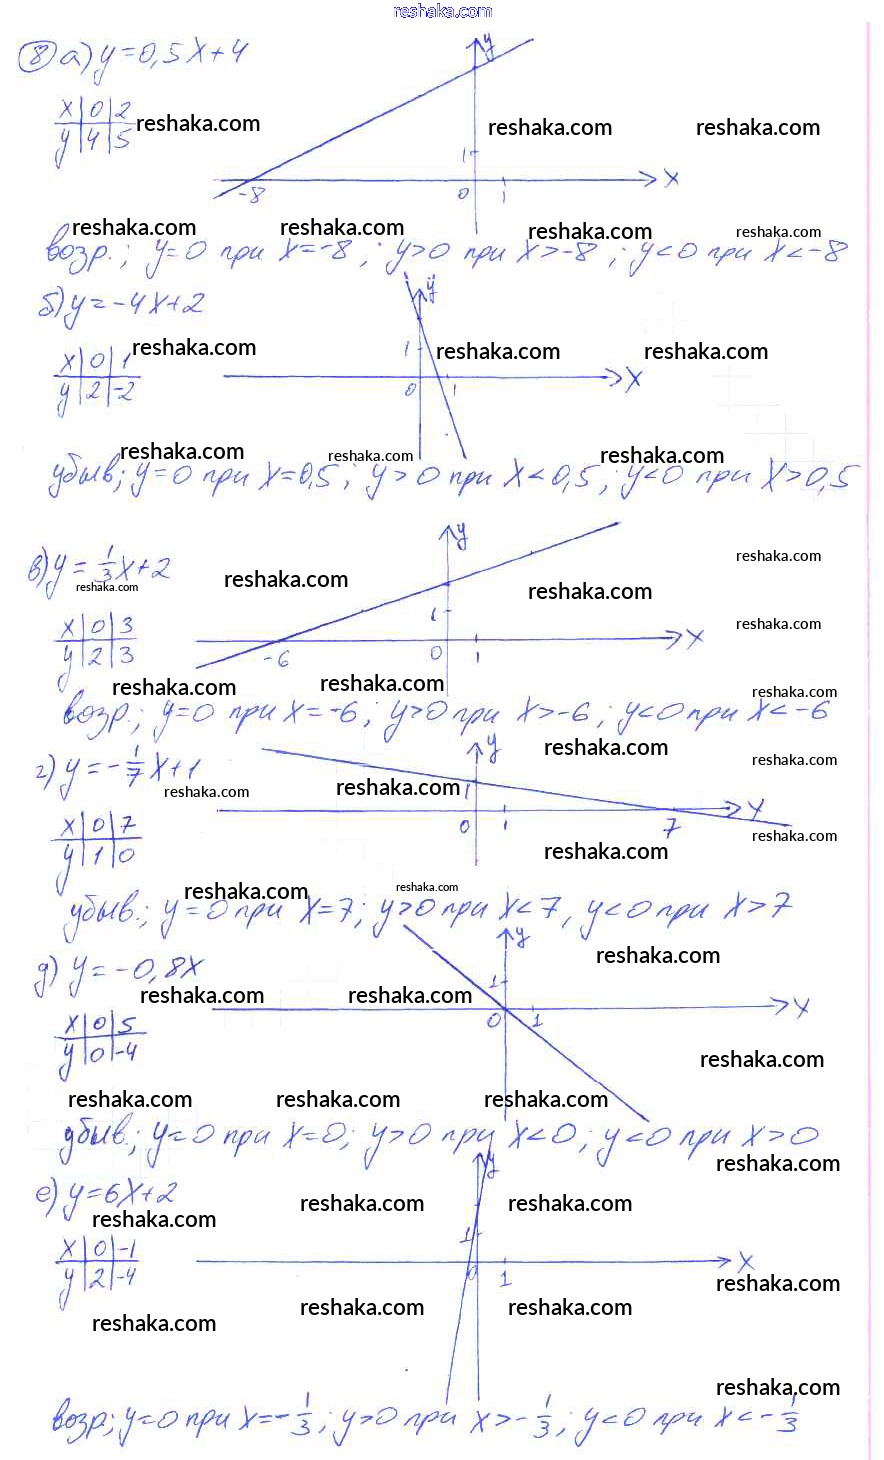 reshaka.com
8 а) y=0,5x+4
y
x | 0 | 2
y | 4 | 5
reshaka.com reshaka.com reshaka.com
1
-8 0 1 x
reshaka.com reshaka.com reshaka.com reshaka.com
возр.; y=0 при x=-8; y>0 при x>-8; y<0 при x<-8
б) y=-4x+2
y
x | 0 | 1
y | 2 | -2
reshaka.com reshaka.com reshaka.com
1
0 1 x
reshaka.com reshaka.com reshaka.com
убыв; y=0 при x=0,5; y>0 при x<0,5; y<0 при x>0,5
y
в) y=1/3x+2
reshaka.com reshaka.com reshaka.com reshaka.com
x | 0 | 3
y | 2 | 3
1 reshaka.com
-6 0 1 x
reshaka.com reshaka.com reshaka.com
возр.; y=0 при x=-6; y>0 при x>-6; y<0 при x<-6
y reshaka.com
г) y=-1/7x+1
reshaka.com reshaka.com reshaka.com
1
x | 0 | 7
y | 1 | 0
0 1 7 x
reshaka.com reshaka.com
reshaka.com reshaka.com
убыв.; y=0 при x=7; y>0 при x<7, y<0 при x>7
y
д) y=-0,8x
reshaka.com
reshaka.com reshaka.com
1
x | 0 | 5
y | 0 | -4
0 1 x
reshaka.com
reshaka.com reshaka.com reshaka.com
убыв.; y=0 при x=0; y>0 при x<0; y<0 при x>0
y reshaka.com
е) y=6x+2
reshaka.com reshaka.com reshaka.com
1
x | 0 | -1
y | 2 | -4
0 1 x
reshaka.com
reshaka.com reshaka.com reshaka.com
reshaka.com
возр; y=0 при x=-1/3; y>0 при x>-1/3; y<0 при x<-1/3